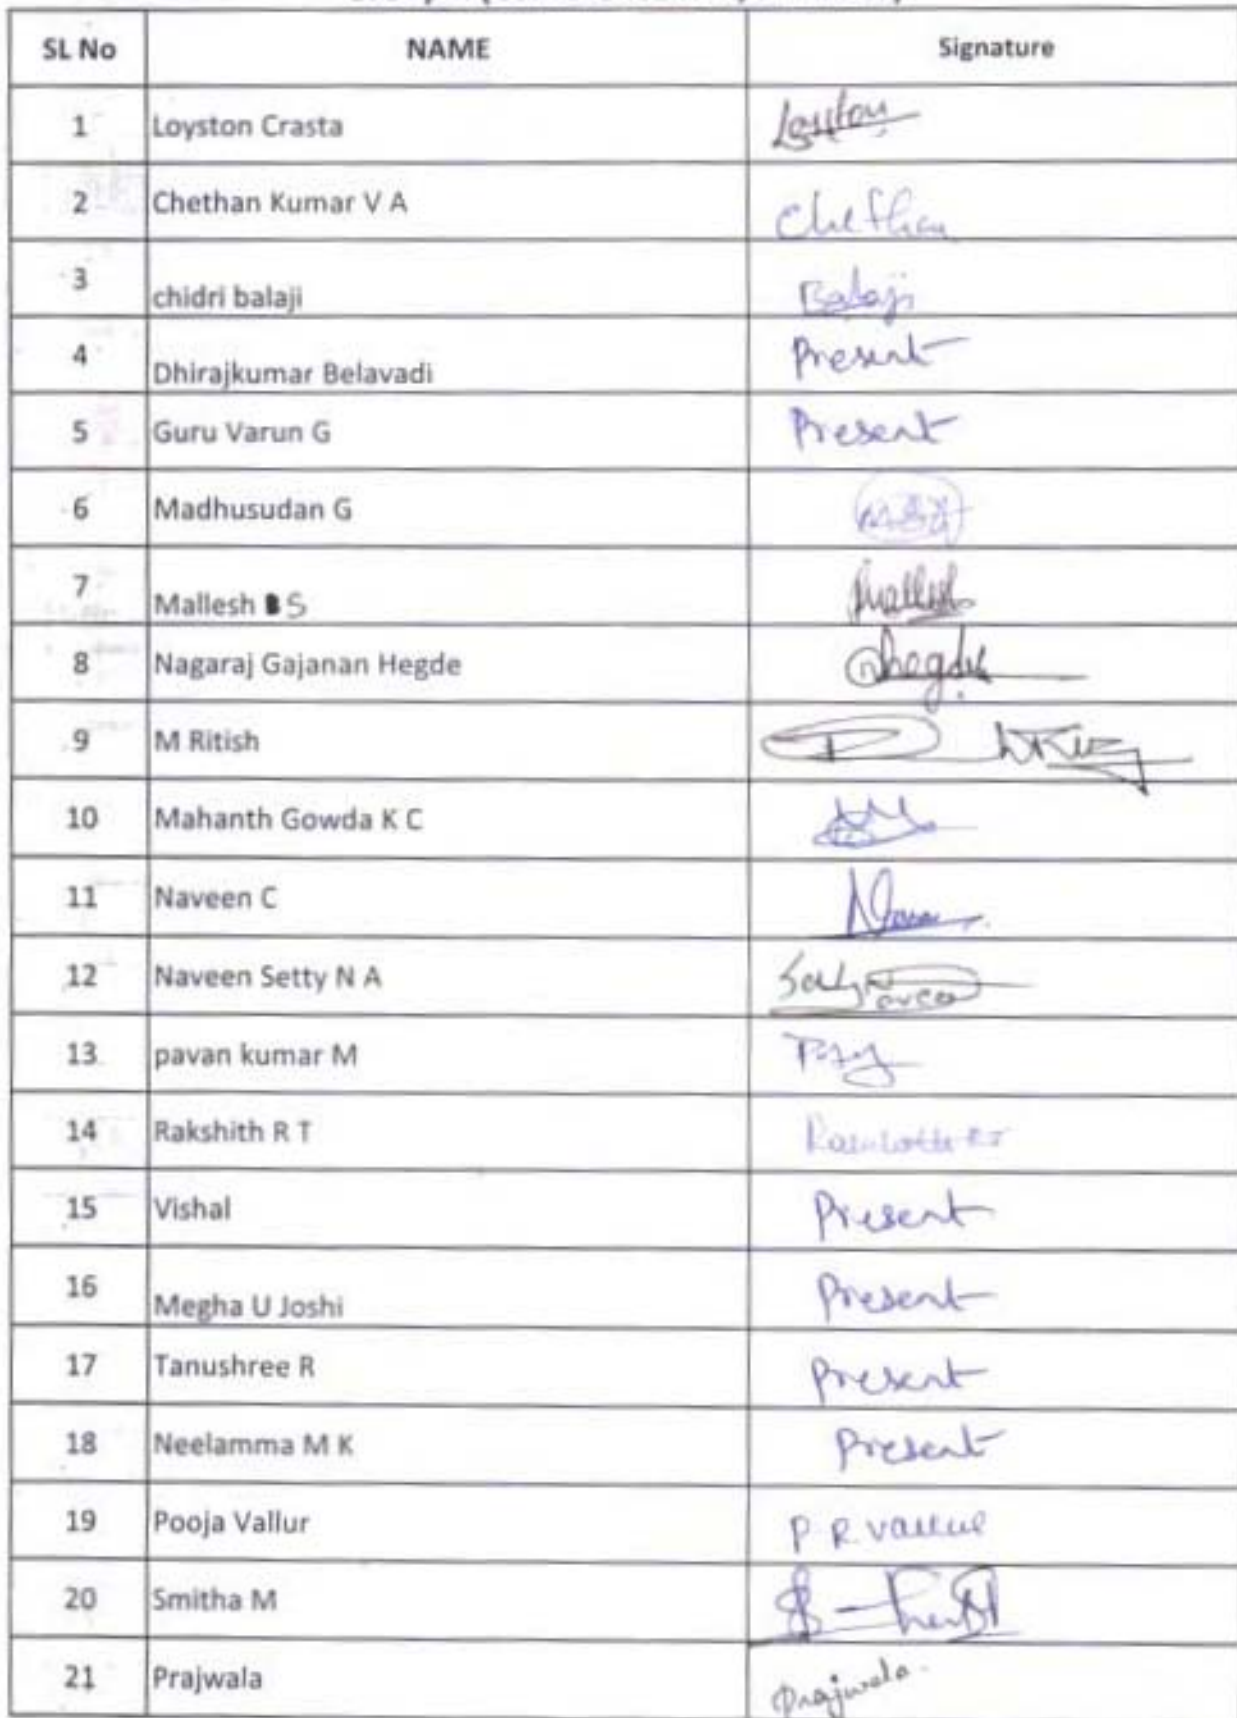 SL No NAME Signature
1 Loyston Crasta Loyston
2 Chethan Kumar V A Chethan
3 chidri balaji Balaji
4 Dhirajkumar Belavadi Present
5 Guru Varun G Present
6 Madhusudan G
7 Mallesh B S Mallesh
8 Nagaraj Gajanan Hegde Hegde
9 M Ritish
10 Mahanth Gowda K C
11 Naveen C
12 Naveen Setty N A
13 pavan kumar M
14 Rakshith R T
15 Vishal Present
16 Megha U Joshi Present
17 Tanushree R Present
18 Neelamma M K Present
19 Pooja Vallur P R Vallur
20 Smitha M
21 Prajwala Prajwala